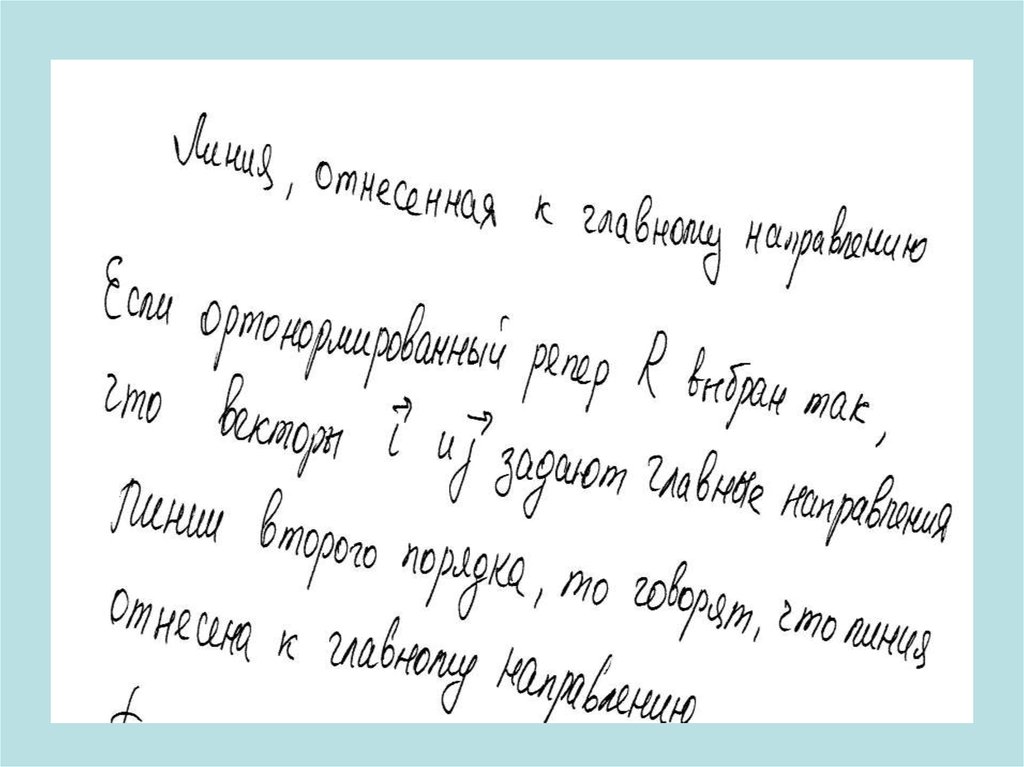 Линия, отнесенная к главному направлению
Если ортонормированный репер R выбран так,
что векторы i⃗ и j⃗ задают главные направления
линии второго порядка, то говорят, что линия
отнесена к главному направлению